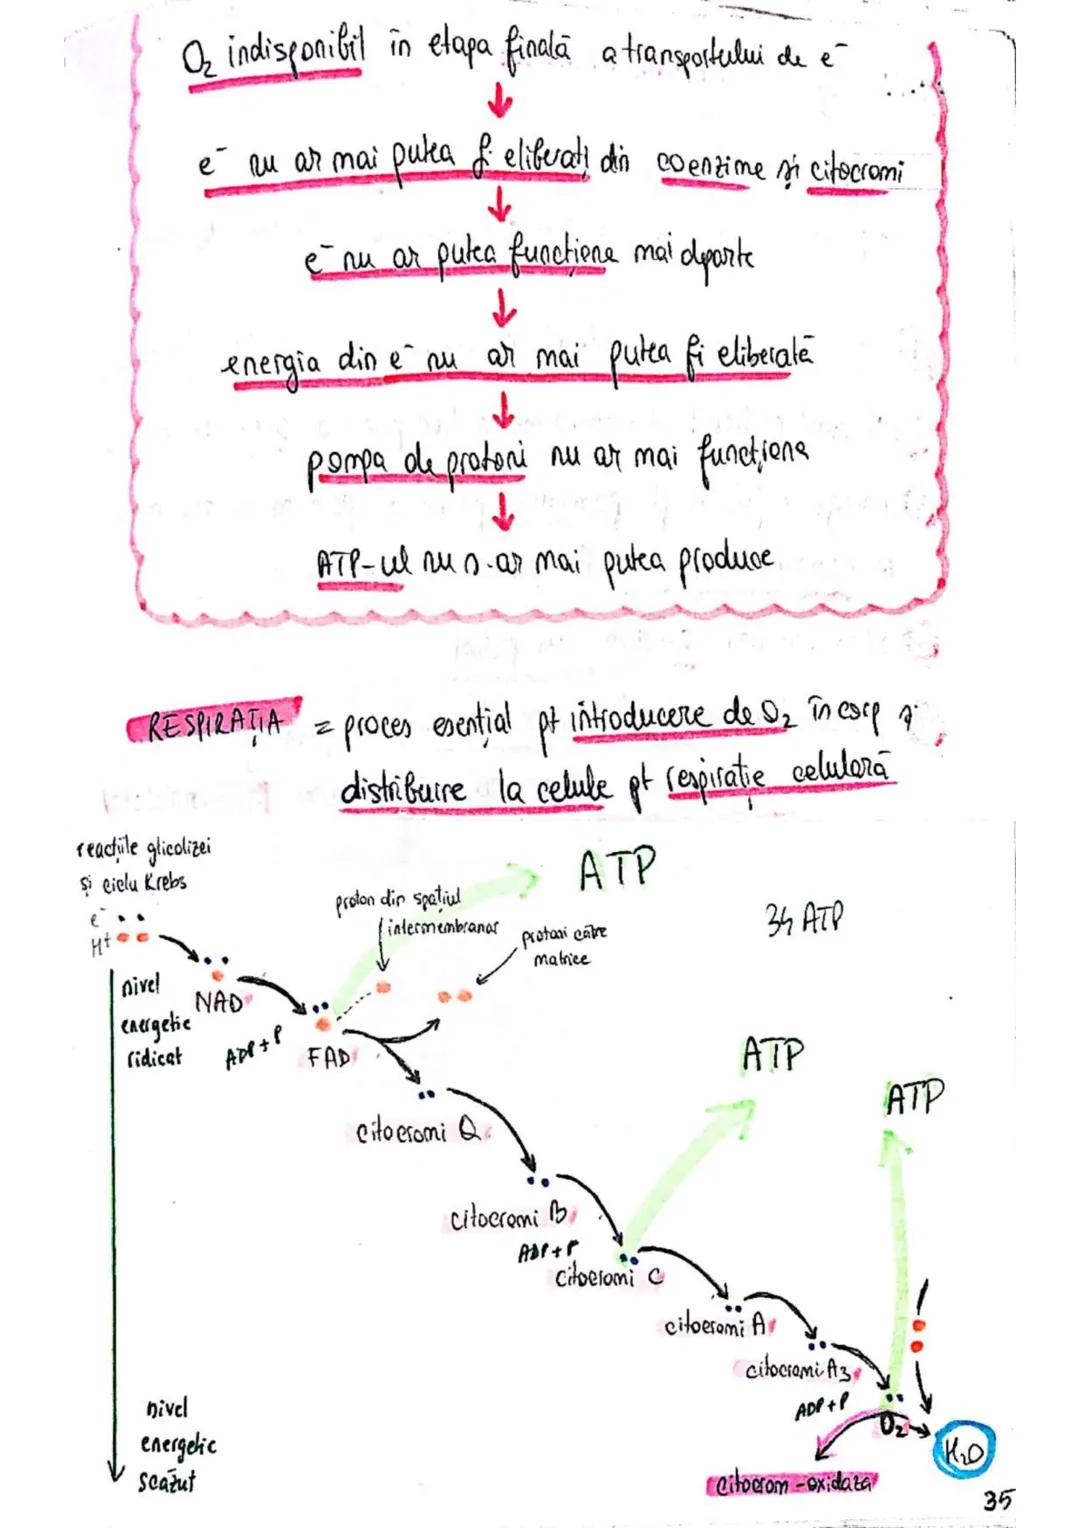 O₂ indisponibil în etapa finală a transportului de e⁻
↓
e⁻ nu ar mai putea fi eliberați din coenzime și citocromi
↓
e⁻ nu ar putea funcționa mai departe
↓
energia din e⁻ nu ar mai putea fi eliberată
↓
pompa de protoni nu ar mai funcționa
↓
ATP-ul nu s-ar mai putea produce
RESPIRAȚIA = proces esențial pt introducere de O₂ în corp și
distribuire la celule pt respirație celulară
reacțiile glicolizei
și ciclu Krebs
e⁻
H+
nivel
energetic
ridicat
NAD
ADP + P
FAD
proton din spațiul
intermembranar
protoni către
matrice
ATP
34 ATP
citocromi Q
citocromi B
ADP + P
citocromi C
ATP
citocromi A
citocromi A3
ADP + P
ATP
O₂
H₂O
citocrom-oxidaza
nivel
energetic
scăzut
35